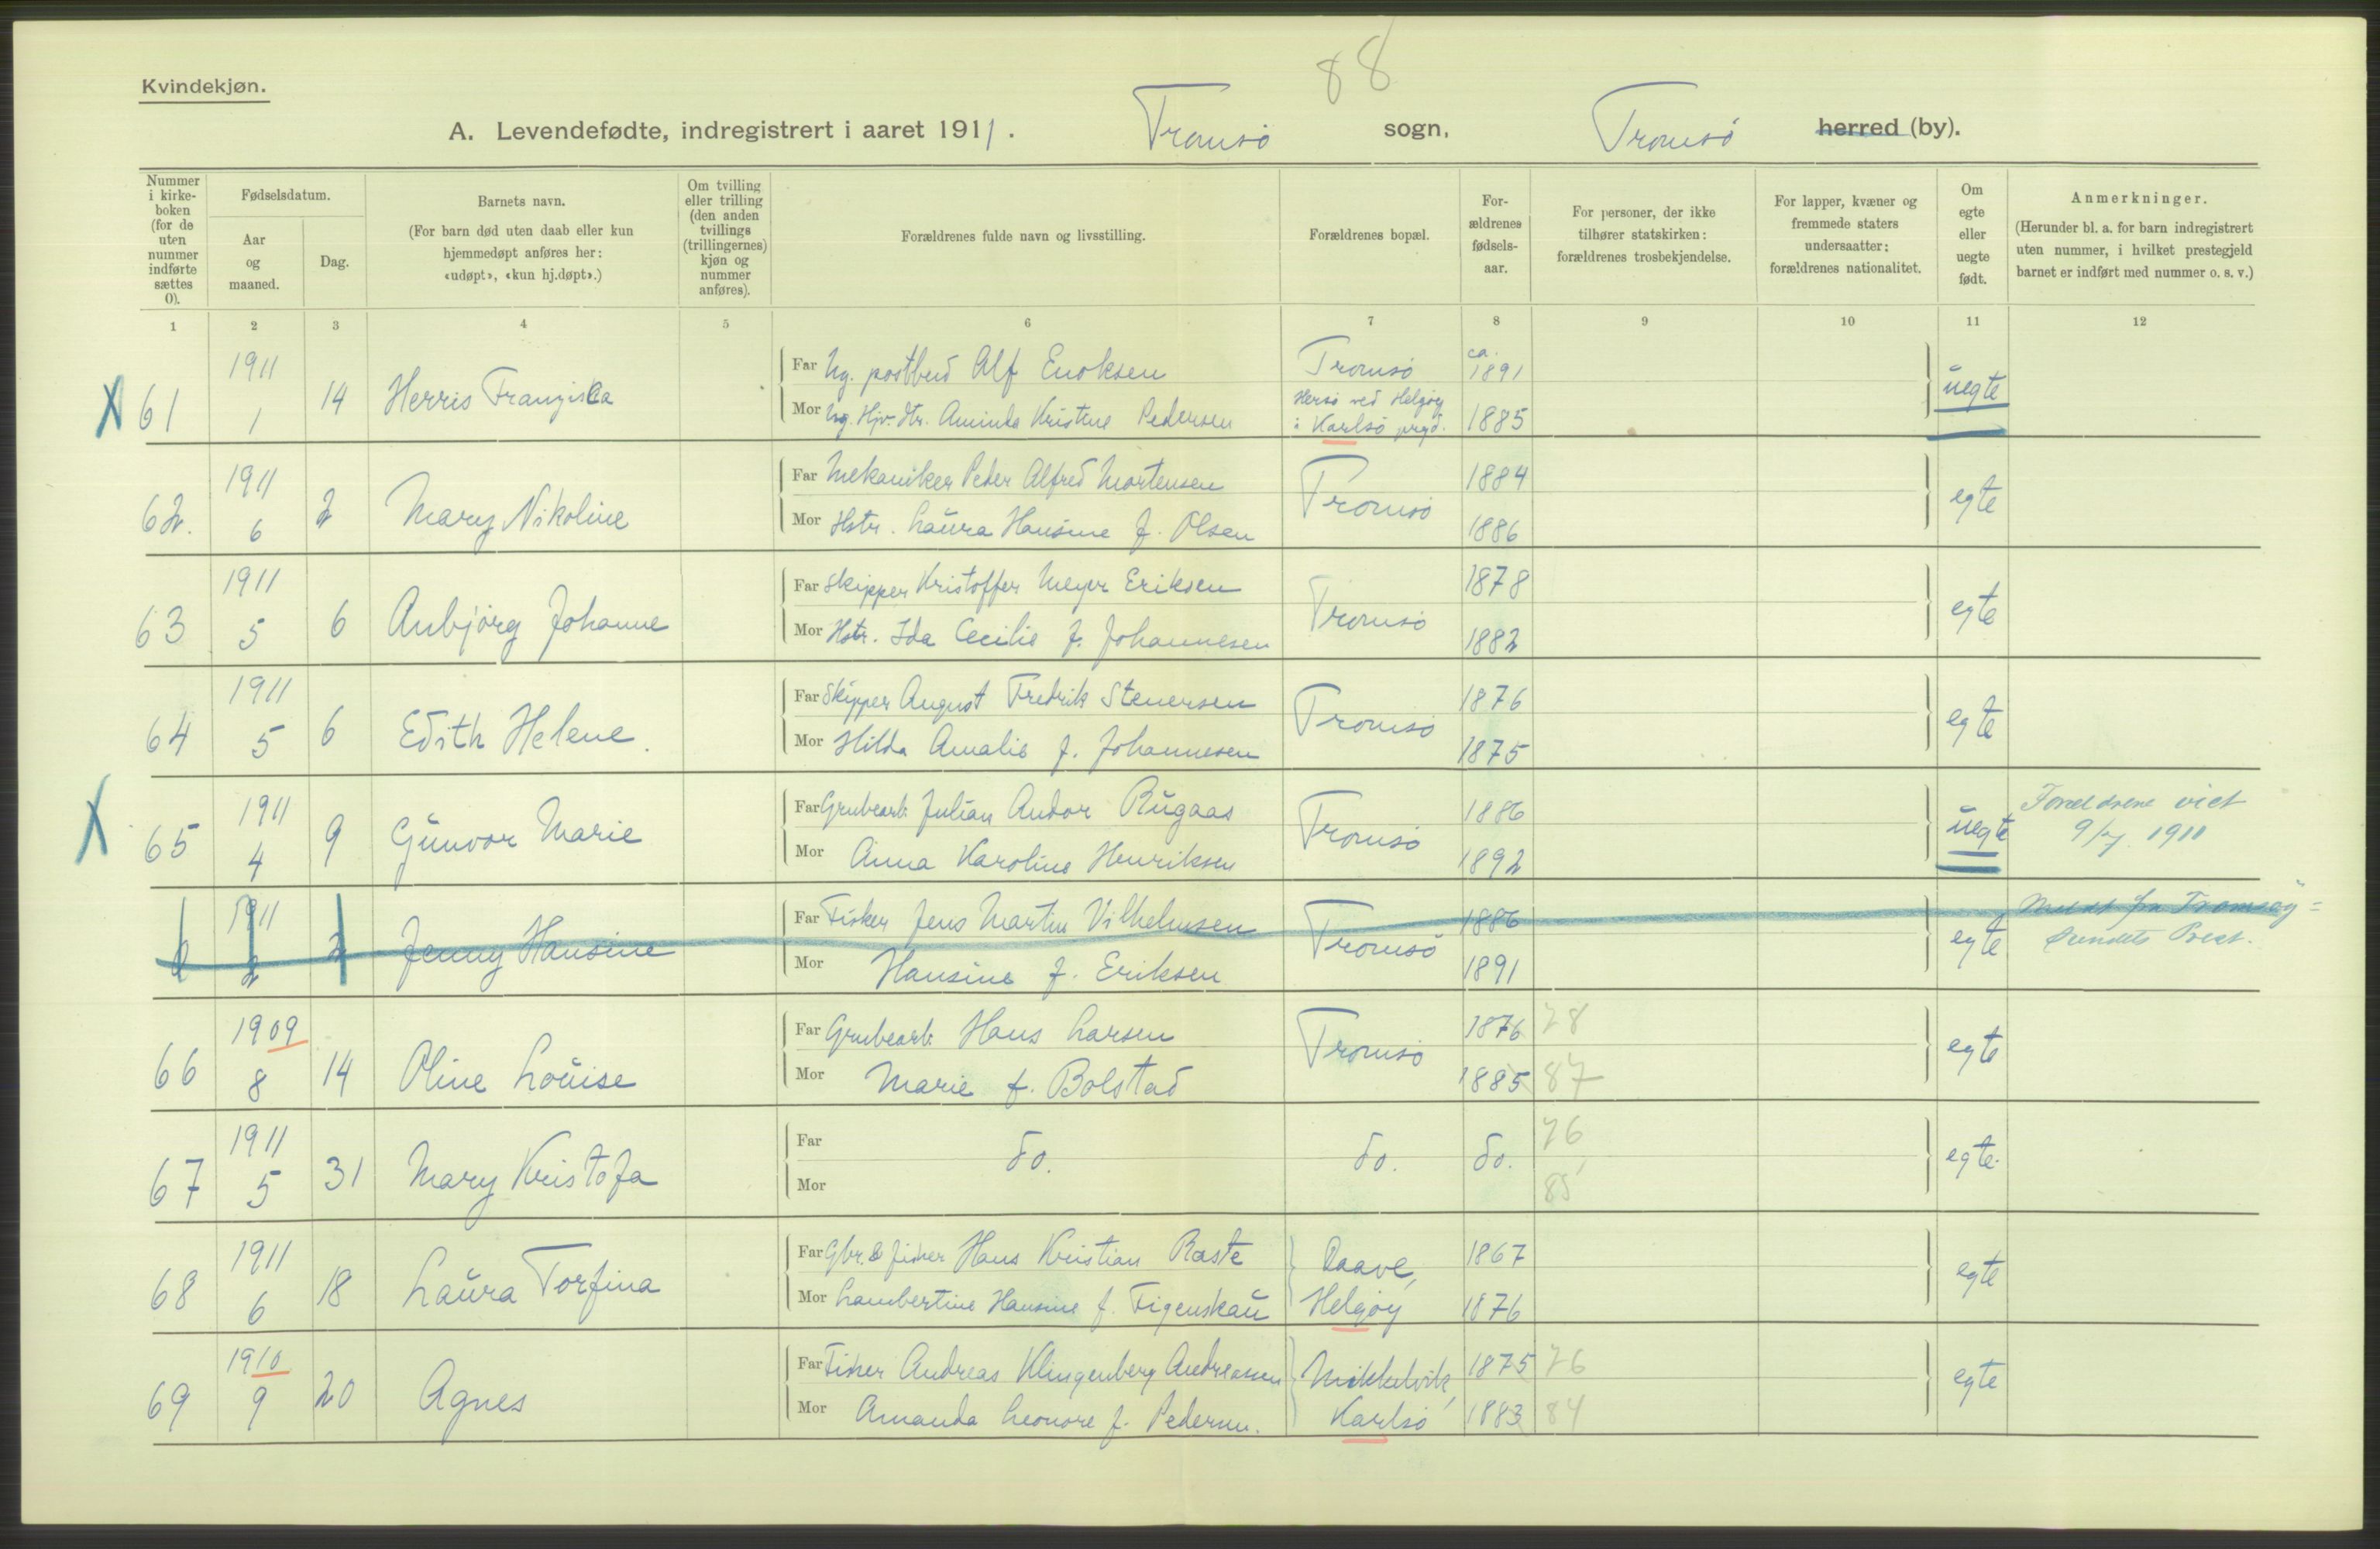 88
Kvindekjøn.
A. Levendefødte, indregistrert i aaret 1911. Tromsö sogn, Tromsö herred (by).
Nummer i kirkeboken (for de uten nummer indførte sættes 0).
Fødselsdatum.
Aar og maaned.
Dag.
Barnets navn.
(For barn død uten daab eller kun hjemmedøpt anføres her: «udøpt», «kun hj.døpt».)
Om tvilling eller trilling (den anden tvillings (trillingernes) kjøn og nummer anføres).
Forældrenes fulde navn og livsstilling.
Forældrenes bopæl.
Forældrenes fødselsaar.
For personer, der ikke tilhører statskirken: forældrenes trosbekjendelse.
For lapper, kvæner og fremmede staters undersaatter: forældrenes nationalitet.
Om egte eller uegte født.
Anmerkninger.
(Herunder bl. a. for barn indregistrert uten nummer, i hvilket prestegjeld barnet er indført med nummer o. s. v.)
1 2 3 4 5 6 7 8 9 10 11 12
X 61 1911 1 14 Herris Franziska
Far Ug. postbud Alf Enoksen Tromsö ca. 1891
Mor Ug. Hjv. dtr. Aminda Kristine Pedersen Hersö ved Helgöy i Karlsö prgd. 1885 uegte
62. 1911 6 2 Mary Nikoline
Far Mekaniker Peder Alfred Mortensen Tromsö 1884
Mor Hstr. Laura Hansine f. Olsen 1886 egte
63 1911 5 6 Anbjörg Johanne
Far Skipper Kristoffer Meyer Eriksen Tromsö 1878
Mor Hstr. Ida Cecilie f. Johannesen 1882 egte
64 1911 5 6 Edith Helene.
Far Skipper August Fredrik Stenersen Tromsö 1876
Mor Hilda Amalie f. Johannesen 1875 egte
X 65 1911 4 9 Gunvor Marie
Far Grubearb. Julian Andor Rugaas Tromsö 1886
Mor Anna Karoline Henriksen 1892 uegte Forældrene viet 9/7 1911
1911 2 2 Jenny Hansine
Far Fisker Jens Martin Vilhelmsen Tromsö 1886
Mor Hansine f. Eriksen 1891 egte fra Tromsöysundets Prest.
66 1909 8 14 Oline Louise
Far Grubearb. Hans Larsen Tromsö 1876 78
Mor Marie f. Bolstad 1885 87 egte
67 1911 5 31 Mary Kristofa
Far do. do. do. 76
Mor 85 egte.
68 1911 6 18 Laura Torfina
Far Gbr. & fisker Hans Kristian Raste Raave, 1867
Mor Lambertine Hansine f. Figenskau Helgöy 1876 egte
69 1910 9 20 Agnes
Far Fisker Andreas Klingenberg Andreasen Mikkelvik, 1875 76
Mor Amanda Leonore f. Pedersen. Karlsö 1883 84 egte